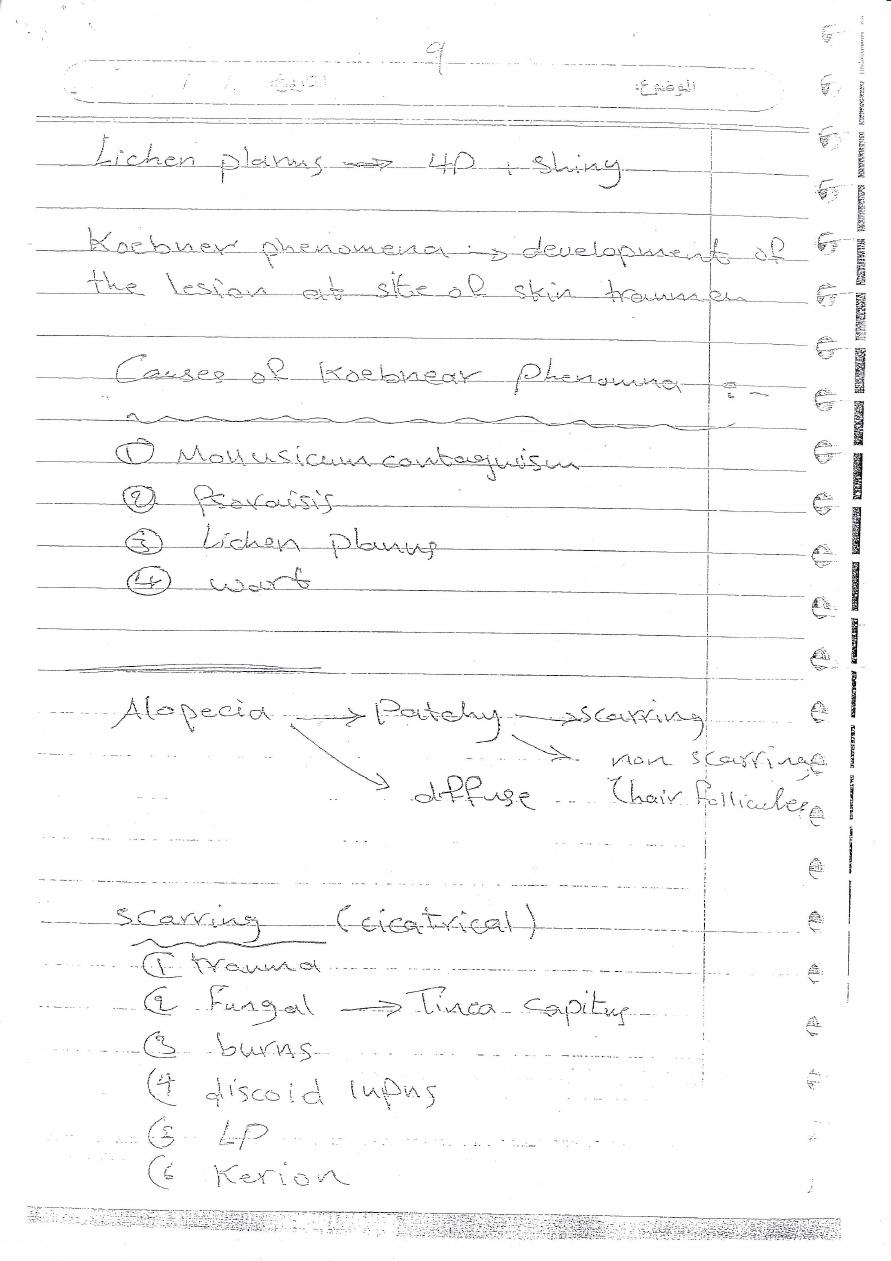 9
التاريخ: / /
الموضوع:
Lichen planus → 4P + Shiny
Koebner phenomena → development of
the lesion at site of skin trauma
Causes of Koebnear phenomna :-
① Mollusicum contagiusm
② Psoraisis
③ Lichen planus
④ wart
Alopecia → Patchy → scarring
→ non scarring
→ diffuse
hair follicules
Scarring (cicatrical)
① trauma
② Fungal → Tinea capitus
③ burns
④ discoid lupus
⑤ LP
⑥ Kerion